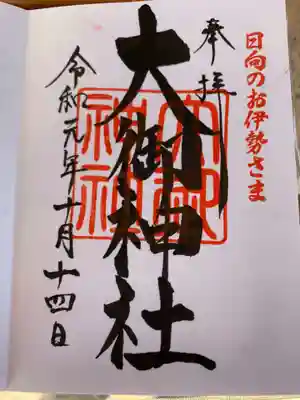 日向のお伊勢さま
奉拝
大御神社
大御神社
令和元年十月十四日